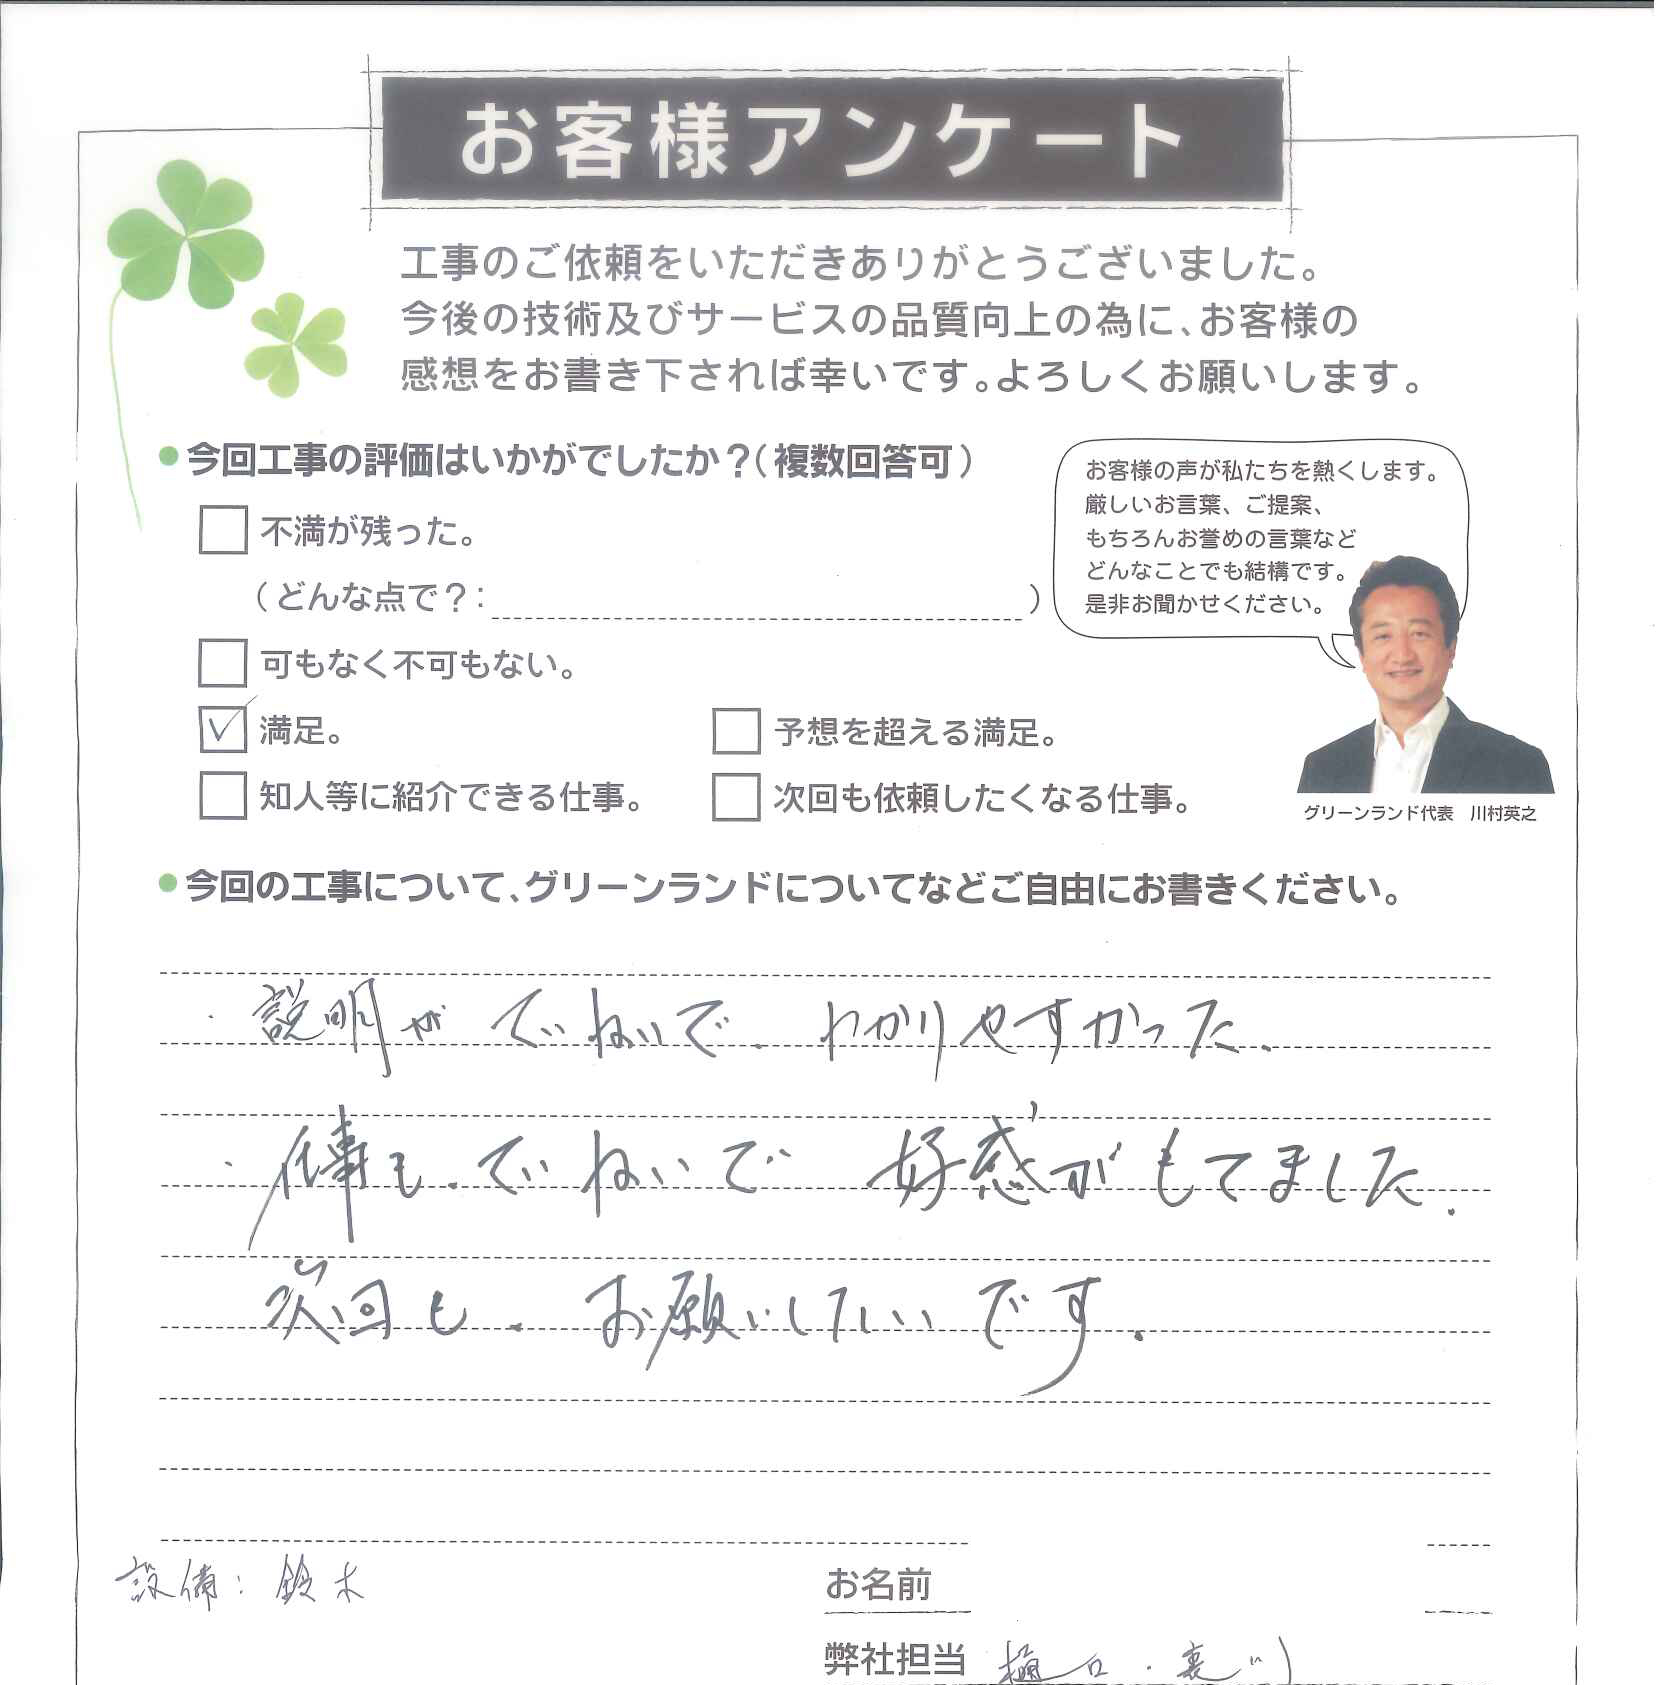 お客様アンケート
工事のご依頼をいただきありがとうございました。
今後の技術及びサービスの品質向上の為に、お客様の
感想をお書き下されば幸いです。よろしくお願いします。
●今回工事の評価はいかがでしたか?(複数回答可)
不満が残った。
(どんな点で?: )
可もなく不可もない。
満足。
予想を超える満足。
知人等に紹介できる仕事。
次回も依頼したくなる仕事。
お客様の声が私たちを熱くします。
厳しいお言葉、ご提案、
もちろんお誉めの言葉など
どんなことでも結構です。
是非お聞かせください。
グリーンランド代表 川村英之
●今回の工事について、グリーンランドについてなどご自由にお書きください。
・説明がていねいで、わかりやすかった。
・仕事も、ていねいで 好感がもてました。
次回も、お願いしたいです。
設備:鈴木
お名前
弊社担当 樋口・裏